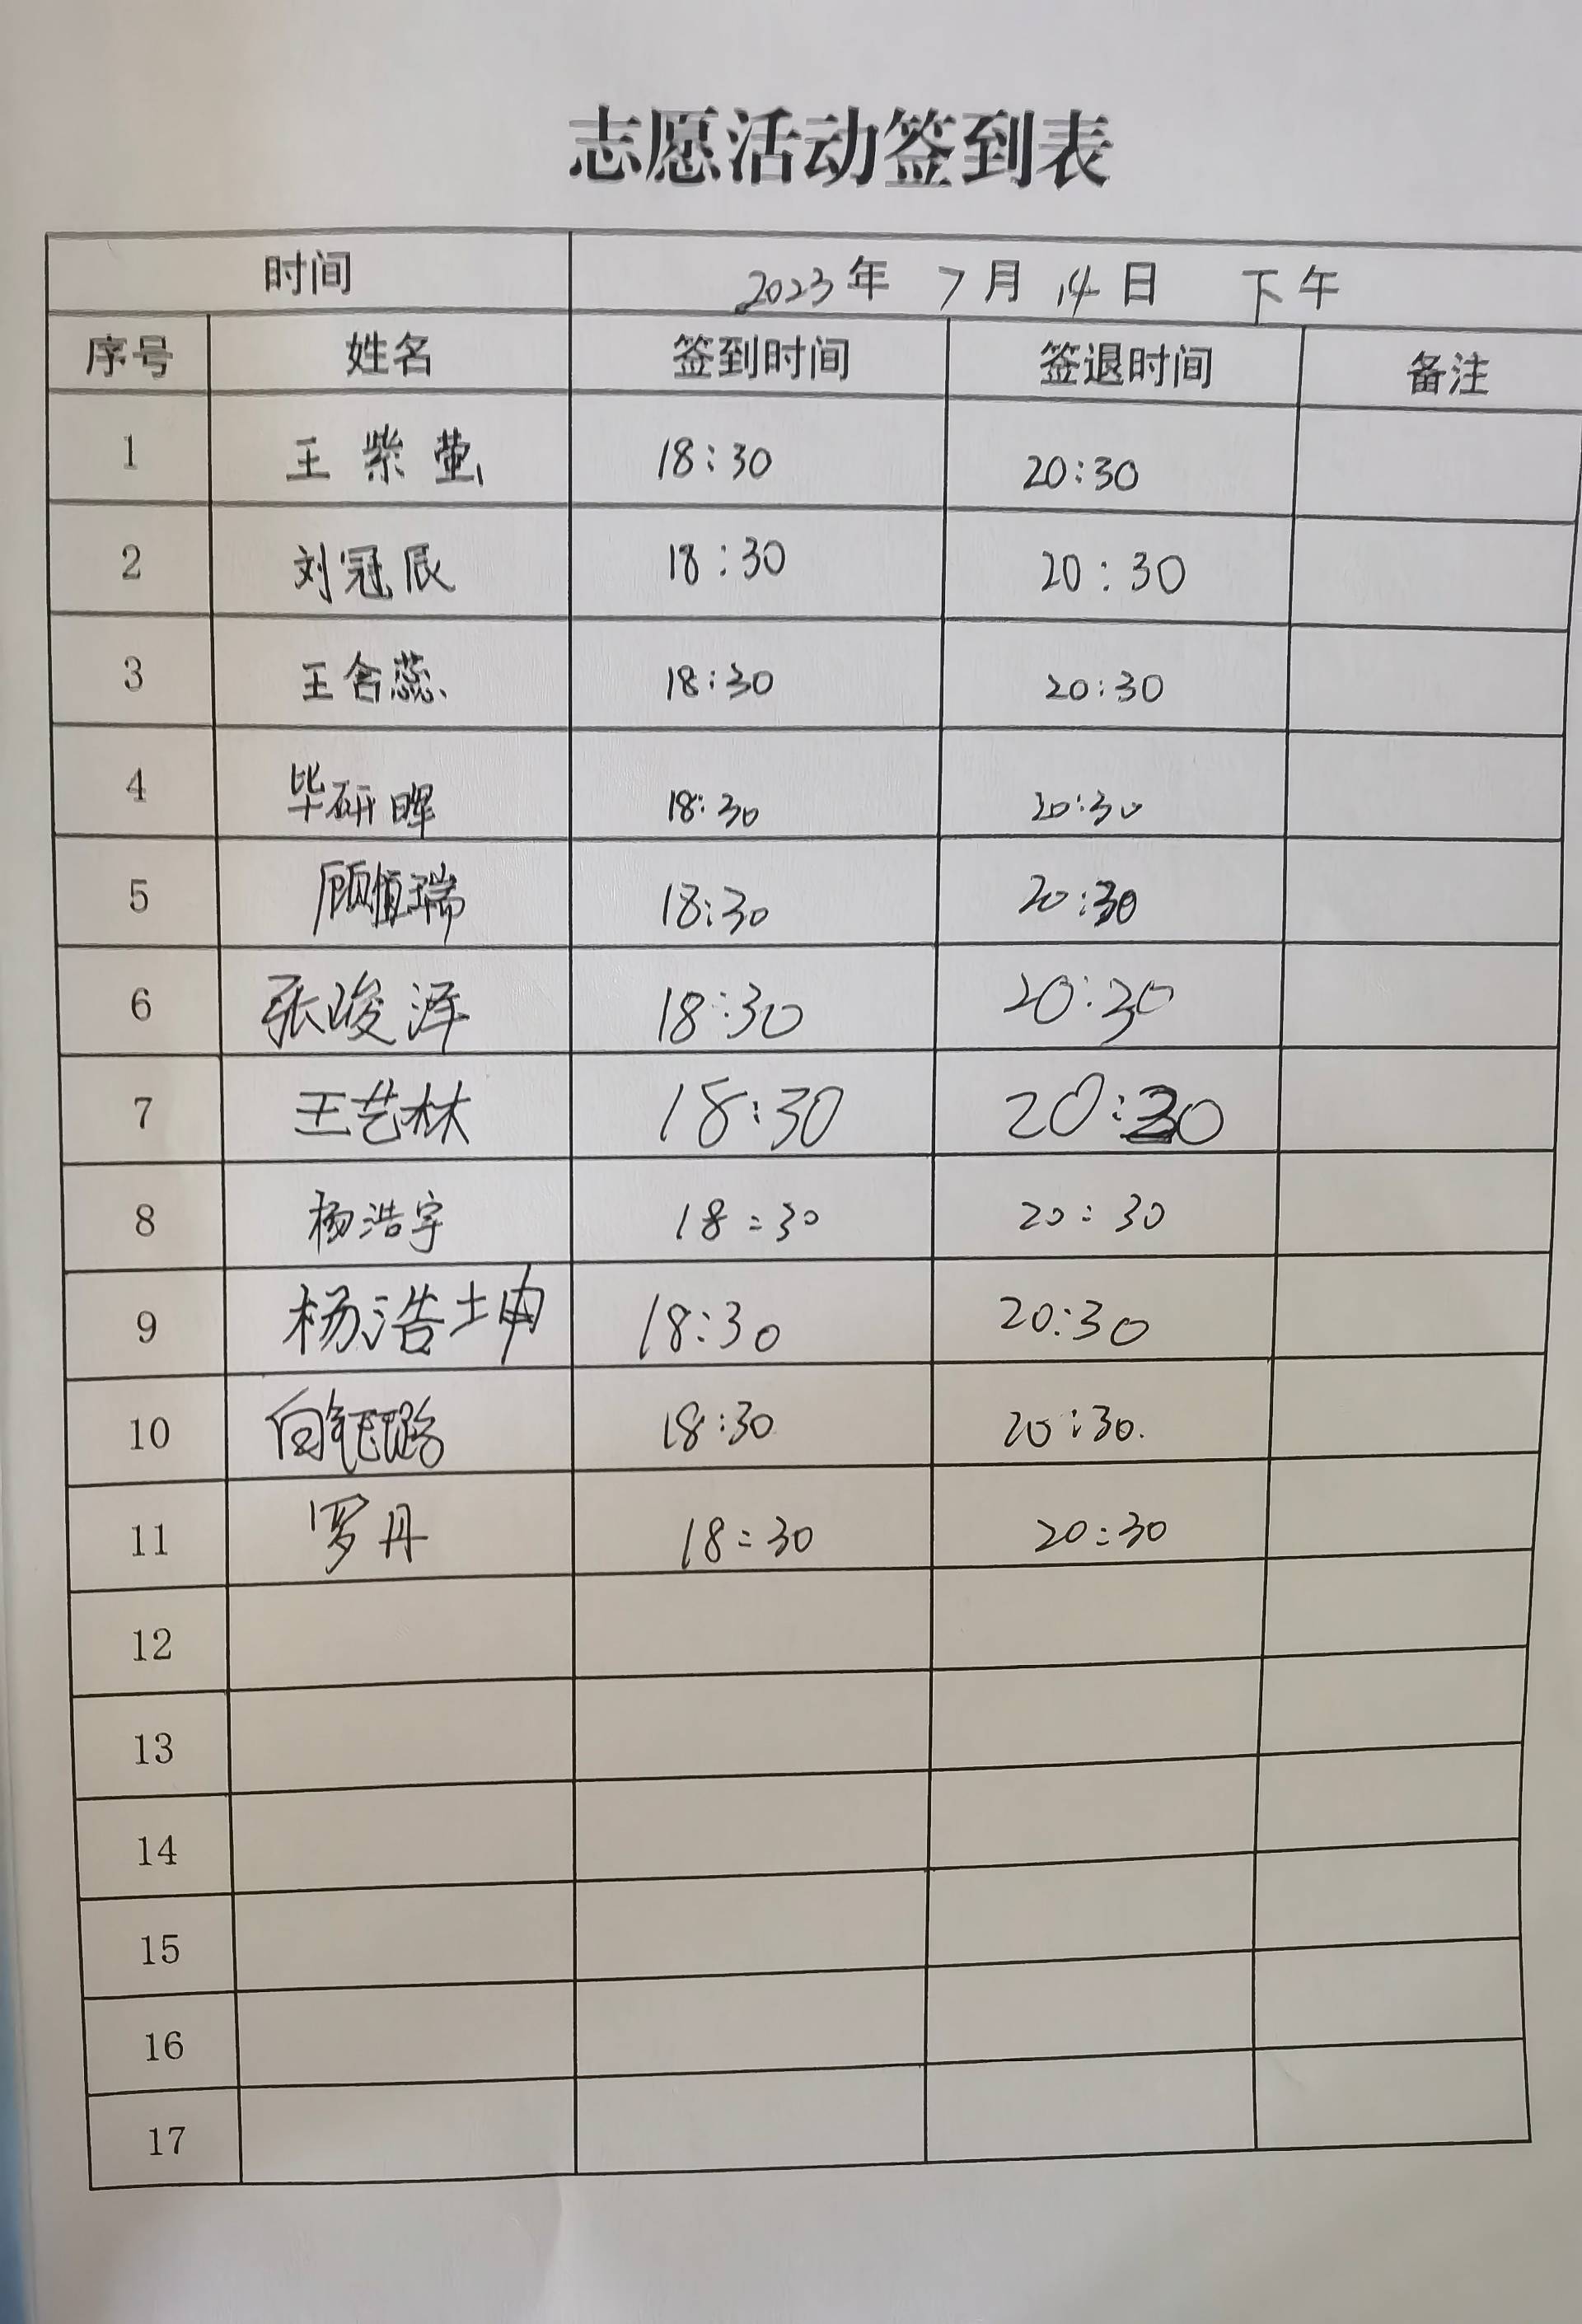 志愿活动签到表
时间 2023年 7月 14日 下午
序号 姓名 签到时间 签退时间 备注
1 王紫萤 18:30 20:30
2 刘冠辰 18:30 20:30
3 王含蕊 18:30 20:30
4 毕研晖 18:30 20:30
5 顾恒瑞 18:30 20:30
6 张峻泽 18:30 20:30
7 王艺林 18:30 20:30
8 杨浩宇 18:30 20:30
9 杨浩坤 18:30 20:30
10 向钰璐 18:30 20:30.
11 罗丹 18:30 20:30
12
13
14
15
16
17